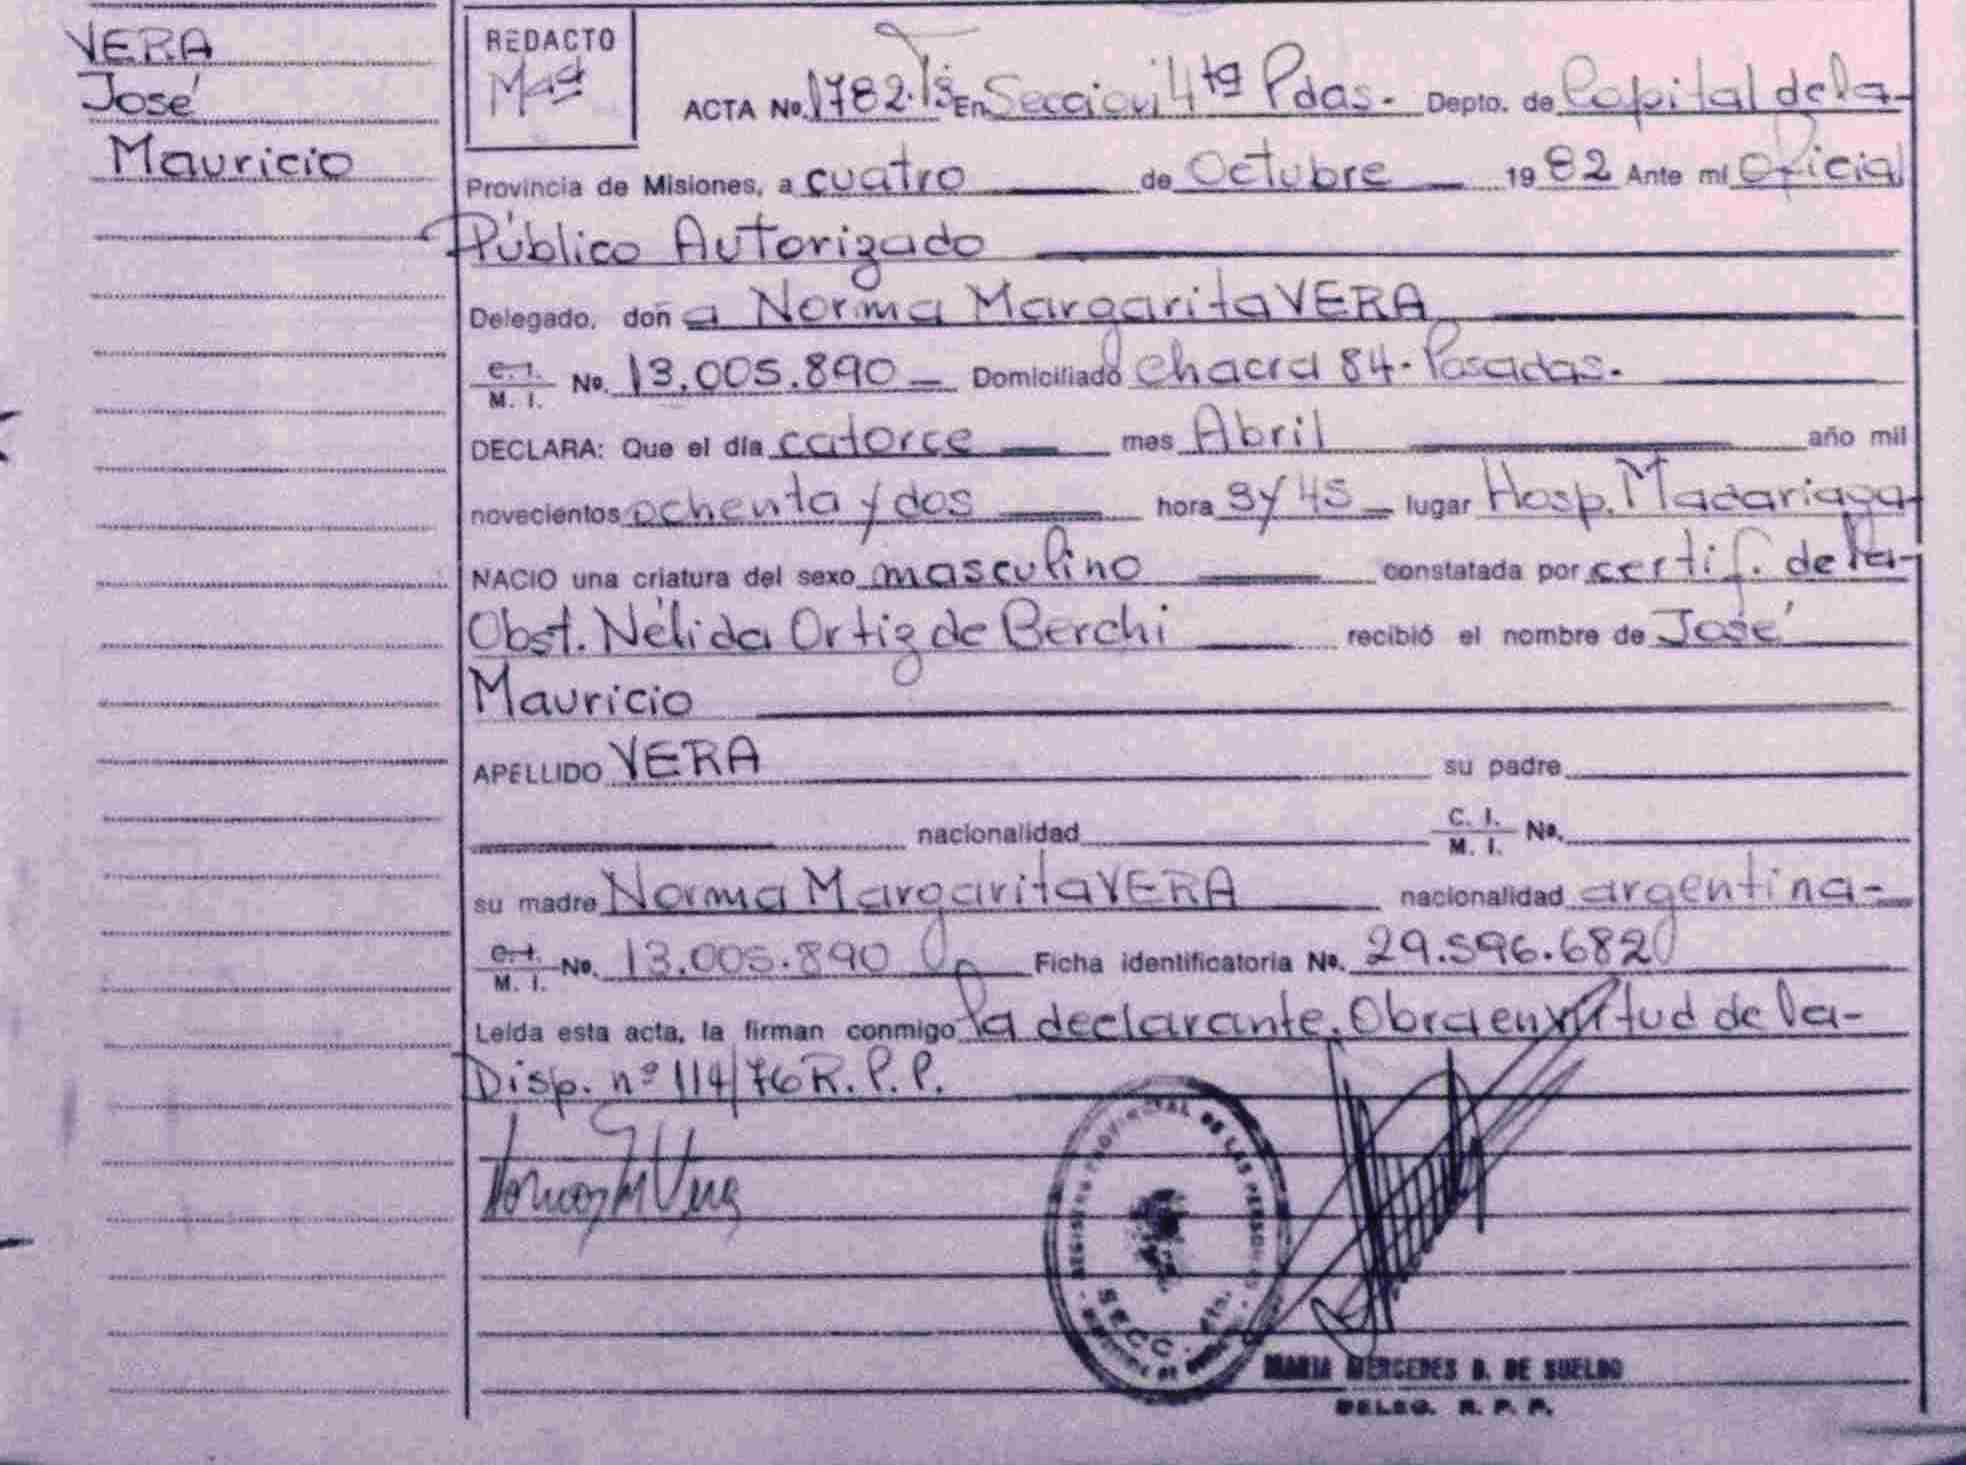 VERA
José
Mauricio
REDACTO
Mª
ACTA No. 1782. Tº En Sección 4ta Pdas. Depto. de Capital de la
Provincia de Misiones, a cuatro de Octubre 1982 Ante mi Oficial
Público Autorizado
Delegado, doña Norma Margarita VERA
C. I.
M. I. No. 13.005.890 Domiciliado Chacra 84. Posadas.
DECLARA: Que el día catorce mes Abril año mil
novecientos ochenta y dos hora 9 y 45 lugar Hosp. Madariaga
NACIO una criatura del sexo masculino constatada por certif. de la
Obst. Nélida Ortiz de Berchi recibió el nombre de José
Mauricio
APELLIDO VERA su padre
nacionalidad C. I.
M. I. No.
su madre Norma Margarita VERA nacionalidad argentina
C. I.
M. I. No. 13.005.890 Ficha identificatoria No. 29.596.682
Leída esta acta, la firman conmigo la declarante. Obra en virtud de la
Disp. nº 114/76 R. P. P.
REGISTRO PROVINCIAL DE LAS PERSONAS
SECC. 4ta.
MARIA MERCEDES D. DE SUELDO
DELEG. R. P. P.